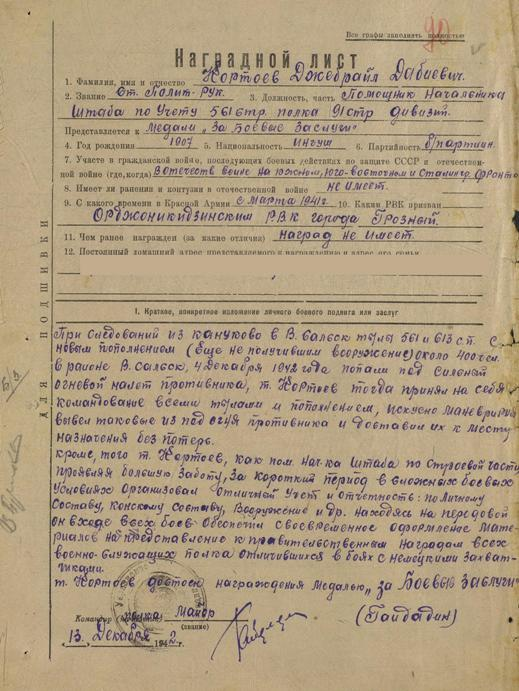 Все графы заполнять полностью
90
Наградной лист
1. Фамилия, имя и отчество Кортоев Джебраил Дабиевич.
2. Звание Ст. Палит-Рук. 3. Должность, часть Помощник Начальника
Штаба по Учету 561 стр. полка 91 стр дивизии.
Представляется к Медали „За Боевые Заслуги"
4. Год рождения 1907 5. Национальность Ингуш 6. Партийность б/партиин.
7. Участе в гражданской войне, последующих боевых действиях по защите СССР и отечествен-
ной войне (где, когда) В отечеств войне на южном, юго-восточном и Сталинг. Фронто
8. Имеет ли ранения и контузии в отечественной войне не имеет.
9. С какого времени в Красной Армии с марта 1941 г. 10. Каким РВК призван
Орджоникидзинским РВК города Грозный.
11. Чем ранее награжден (за какие отличия) наград не имеет.
12. Постоянный домашний адрес представляемого к награждению и адрес его семьи
ДЛЯ ПОДШИВКИ
I. Краткое, конкретное изложение личного боевого подвига или заслуг
При следований из кануково в В. Салвск тылы 561 и 613 с.п. с
новым пополнением (Еще не получившим вооружение) около 400 чел.
в районе В. Салвск, 4 Декабря 1942 года попали под силеный
огневой налет противника, т. Кортоев тогда принял на себя
командование всеми тылами и пополнением, искусно маневрируя
вывел таковые из под огня противника и доставил их к месту
назначения без потерь.
кроме, того т. Кортоев, как пом. нач-ка Штаба по строевой части
проявляя большую заботу, за короткий период в сложных боевых
условиях организовал отличный учет и отчетность: по личному
составу, конскому составу, вооружение и др. находясь на передовой
он входе всех боев обеспечил своевременное оформление мате-
риалов на представление к правительственным наградам всех
военно-служащих полка отличившихся в боях с немецкими захват-
чиками.
т. Кортоев достоен награждения медалью „за Боевые заслуги"
Командир полка Майор (Гайдадин)
(звание)
13. Декабря 1942